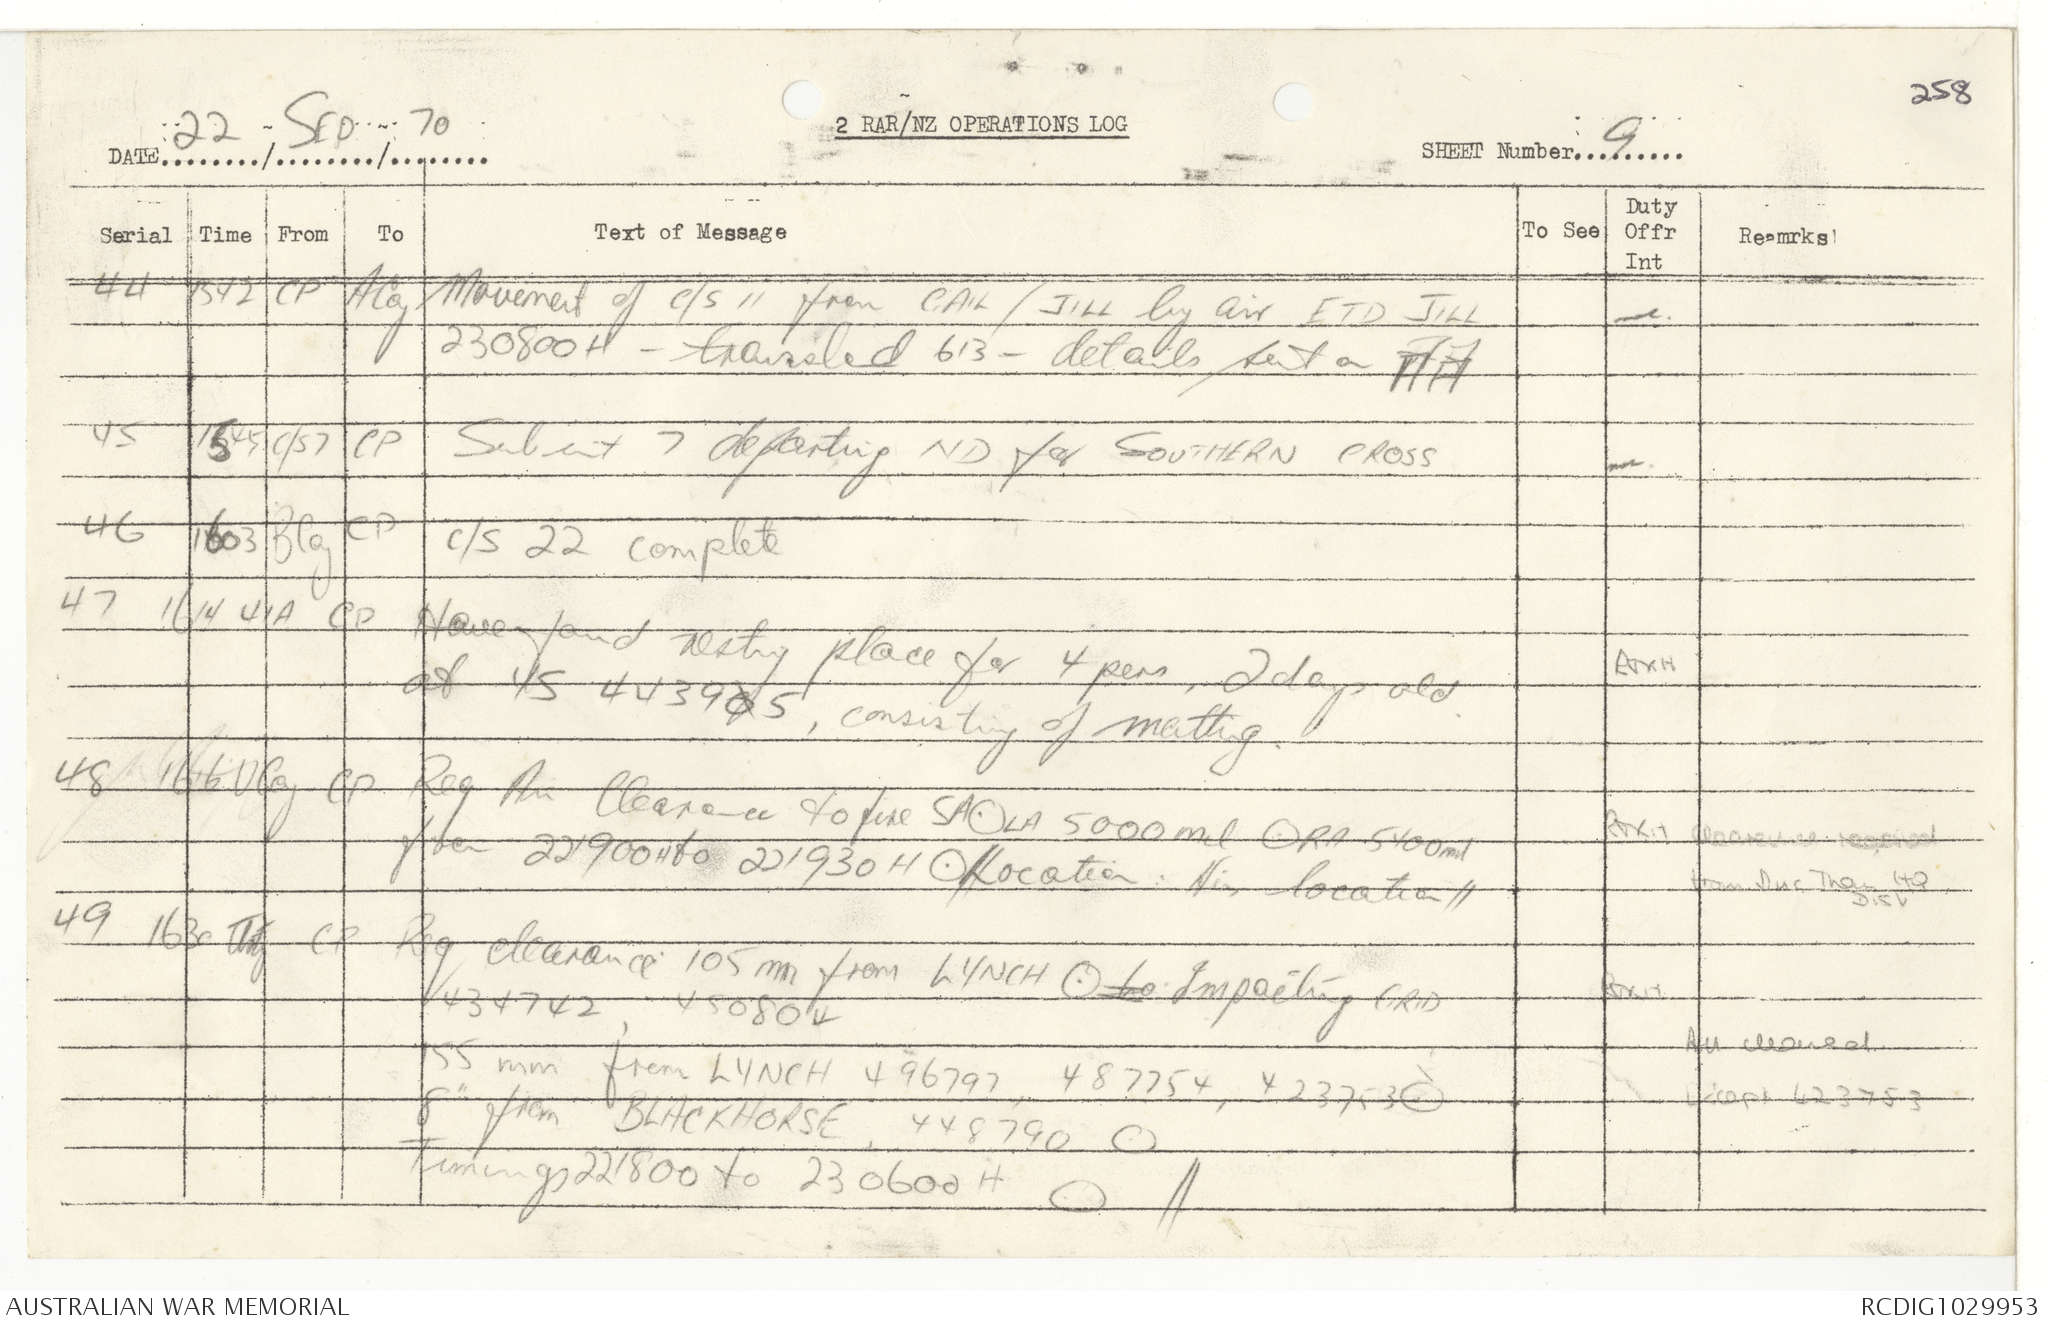 258
22 SEP 70
2 RAR/NZ OPERATIONS LOG
DATE......../......../........
SHEET Number.. 9 ........
Serial Time From To Text of Message To See Duty Offr Int Reamrks
44 1542 CP ACoy Movement of c/s 11 from GAIL / JILL by air ETD JILL
230800H - 613 - details sent on
45 1545 c/s7 CP Subunit 7 departing ND for SOUTHERN CROSS
46 1603 BCoy CP c/s 22 complete
47 1614 41A CP Have found resting place for 4 pers, 2 days old
at YS 443905, consisting of matting.
48 1616 VCoy CP Req Air Clearance to fire SA ⊙ LA 5000 mil ⊙ RA 5400 mil
from 221900H to 221930H ⊙ // Location: His location //
Clearance received
from Duc Thanh HQ
49 1630 CP Req clearance 105 mm from LYNCH ⊙ to Impacting GRID
434742, 480804
All cleared
155 mm from LYNCH 496797, 487754, 423753 ⊙
except 423753
8" from BLACKHORSE, 448790 ⊙
Timings 221800 to 230600H ⊙ //
AUSTRALIAN WAR MEMORIAL RCDIG1029953